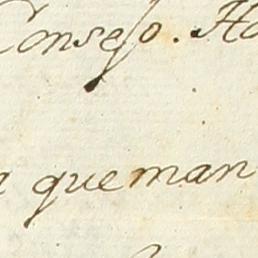 Consejo. Ha
a que man